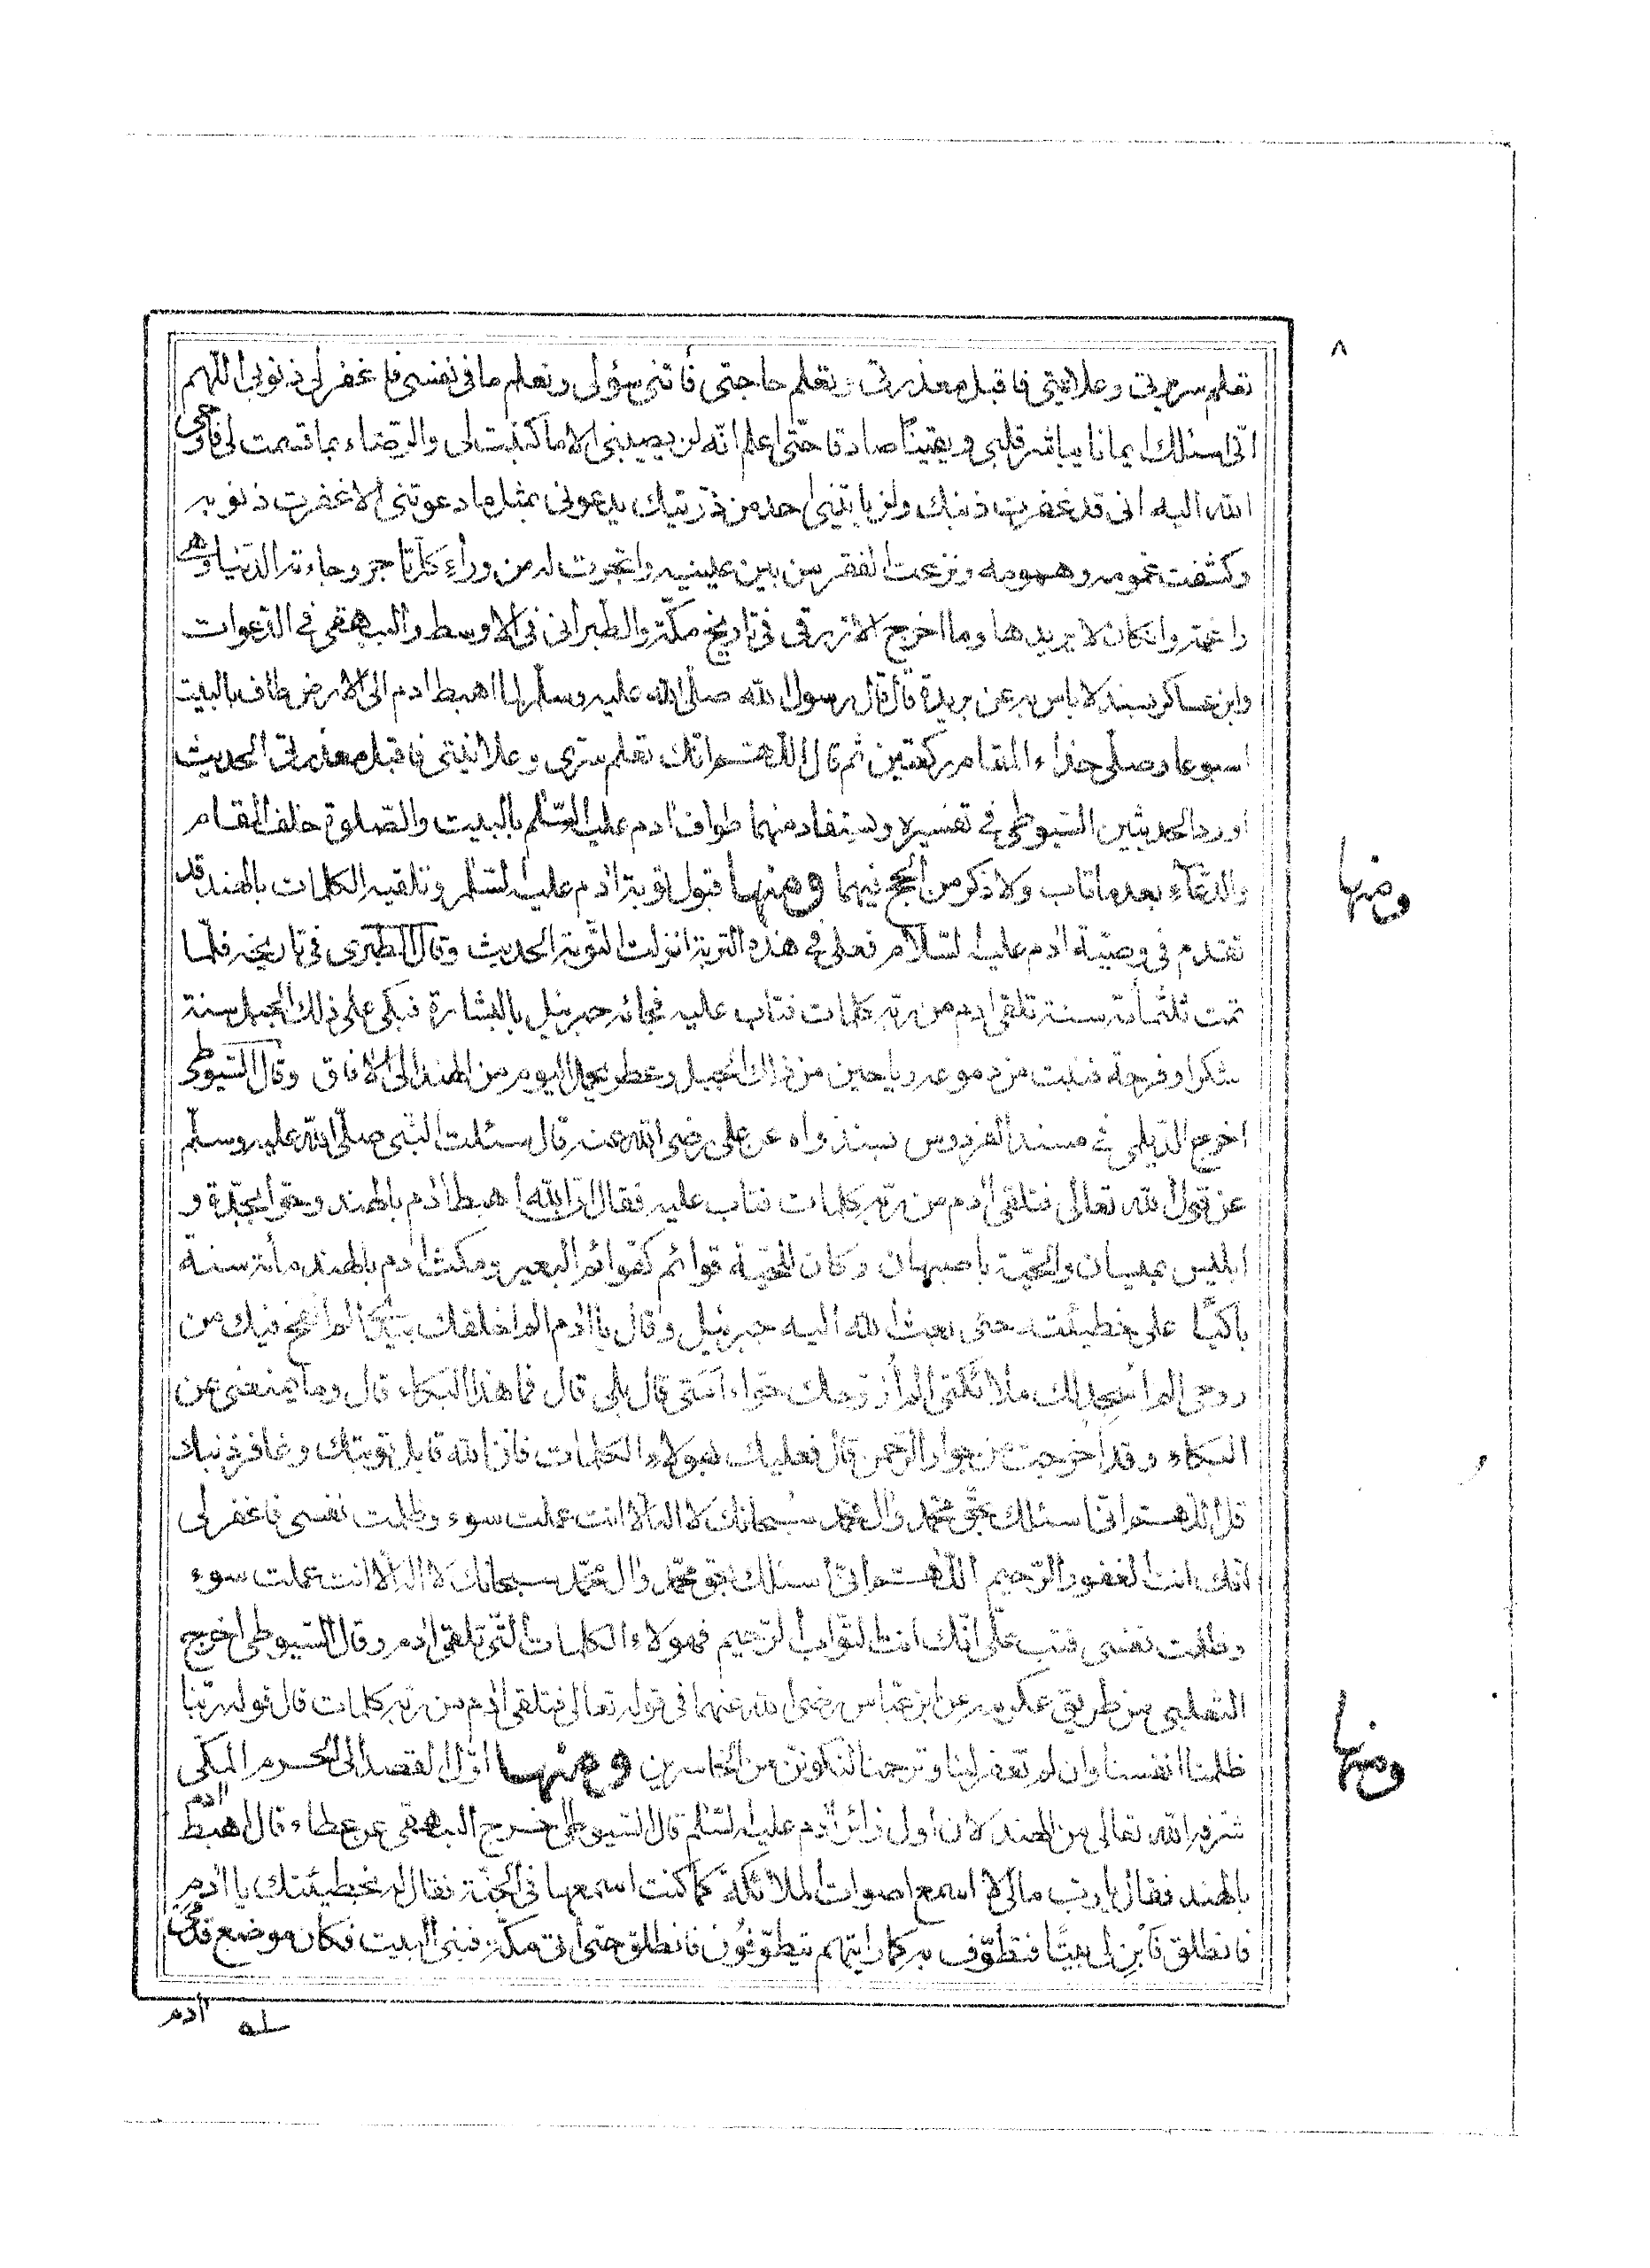 ٨
تعلم سريرتى وعلانيتى فاقبل معذرتى وتعلم حاجتى فأتنى سؤلى وتعلم ما فى نفسى فاغفر لى ذنوبى اللهم
انّى اسئلك ايمانا يباشر قلبى ويقينًا صادقا حتّى اعلم انّه لن يصيبنى الا ما كتبت لى والرّضاء بما قسمت لى فاوحى
الله اليه انى قد غفرت ذنبك ولن يأتينى احد من ذرّيتك يدعونى بمثل ما دعوتنى الا غفرت ذنوبه
وكشفت غمومه وهمومه ونزعت الفقر من بين عينيه واتجرت له من وراء كل تاجر وجاءته الدّنيا وهى
راغمة وان كان لا يريدها وما اخرج الازرقى فى تاريخ مكّة والطبرانى فى الاوسط والبيهقى فى الدّعوات
وابن عساكر بسند لا باس به عن بريدة قال قال رسول الله صلّى الله عليه وسلّم لما اهبط ادم الى الارض طاف بالبيت
اسبوعا وصلّى حذاء المقام ركعتين ثم قال اللّهم انّك تعلم سرّى وعلانيتى فاقبل معذرتى الحديث
اورد الحديثين السّيوطى فى تفسيره ويستفاد منهما طواف ادم عليه السّلم بالبيت والصّلوة خلف المقام
والدّعاء بعد ما تاب ولا ذكر من الحج فيهما ومنها قبول توبة ادم عليه السّلم وتلقيه الكلمات بالهند قد
تقدم فى وصيّة ادم عليه السّلام فعلى فى هذه التربة انزلت التّوبة الحديث وقال الطبرى فى تاريخه فلمّا
تمت ثلثمائة سنة تلقى ادم من ربّه كلمات فتاب عليه فجائه جبرئيل بالبشارة فبكى على ذلك الجبل سنة
شكرا وفرحة فنبت من دموعه رياحين من ذلك الجبل وعطر يحمل اليوم من الهند الى الافاق وقال السّيوطى
اخرج الدّيلمى فى مسند الفردوس بسند واه عن على رضى الله عنه قال سئلت النّبى صلّى الله عليه وسلّم
عن قول الله تعالى فتلقى ادم من ربّه كلمات فتاب عليه فقال ان الله اهبط ادم بالهند وحوا بجدّة و
ابليس بميسان والحيّة باصبهان وكان للحيّة قوائم كقوائم البعير ومكث ادم بالهند مائة سنة
باكيًا على خطيئته حتى بعث الله اليه جبرئيل وقال يا ادم الم اخلقك بيدى الم انفخ فيك من
روحى الم أسجد لك ملائكتى الم أزوّجك حوّاء أمتى قال بلى قال فما هذا البكاء قال وما يمنعنى من
البكاء وقد اخرجت من جوار الرّحمن قال فعليك بهولاء الكلمات فان الله قابل توبتك وغافر ذنبك
قل اللّهم انّى اسئلك بحق محمّد وال محمّد سبحانك لا اله الّا انت عملت سوء وظلمت نفسى فاغفر لى
انّك انت الغفور الرّحيم اللّهم انّى اسئلك بحق محمّد وال محمّد سبحانك لا اله الّا انت عملت سوء
وظلمت نفسى فتب علىّ انّك انت التّواب الرّحيم فهولاء الكلمات الّتى تلقى ادم وقال السّيوطى اخرج
الثعلبى من طريق عكرمه عن ابن عبّاس رضى الله عنهما فى قوله تعالى فتلقى ادم من ربّه كلمات قال قوله ربّنا
ظلمنا انفسنا وان لم تغفر لنا وترحمنا لنكونن من الخاسرين ومنها اوّل القصد الى الحرم المكّى
شرّفه الله تعالى من الهند لان اول زائر ادم عليه السّلم قال السّيوطى اخرج البيهقى عن عطاء قال اهبط ادم
بالهند فقال يا ربّ مالى لا اسمع اصوات الملائكة كما كنت اسمعها فى الجنّة فقال له بخطيئتك يا ادم
فانطلق فأبن لى بيتًا فتطوّف به كما رايتهم يتطوّفون فانطلق حتى اتى مكّة فبنى البيت فكان موضع قدمى
ادم
ومنها
ومنها